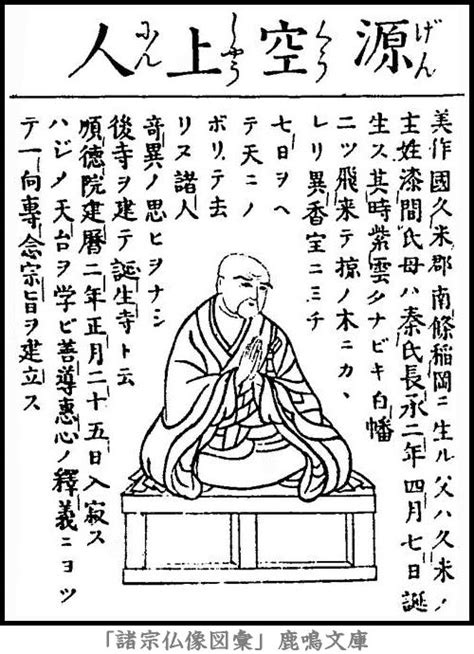 源空上人
げんくうしやうにん
美作國久米郡南條稲岡ニ生ル父ハ久米ノ
主姓漆間氏母ハ秦氏長承二年四月七日誕
生ス其時紫雲タナビキ白幡
二ツ飛来テ椋ノ木ニカヽ
レリ異香室ニミチ
七日ヲヘ
テ天ニノ
ボリテ去
リヌ諸人
奇異ノ思ヒヲナシ
後寺ヲ建テ誕生寺ト云
順徳院建暦二年正月二十五日入寂ス
ハジメ天台ヲ学ビ善導惠心ノ釋義ニヨツ
テ一向專念宗旨ヲ建立ス
「諸宗仏像図彙」鹿鳴文庫